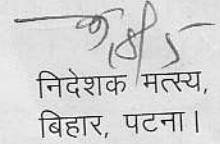 निदेशक मत्स्य,
बिहार, पटना।